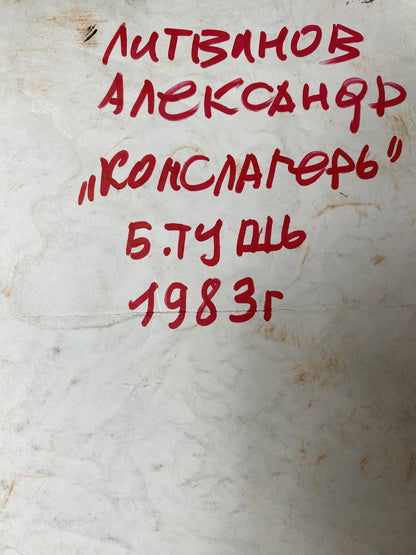 ЛИТВИНОВ
АЛЕКСАНДР
„КОНСЛАГЕРЬ"
Б.ТУШЬ
1983г